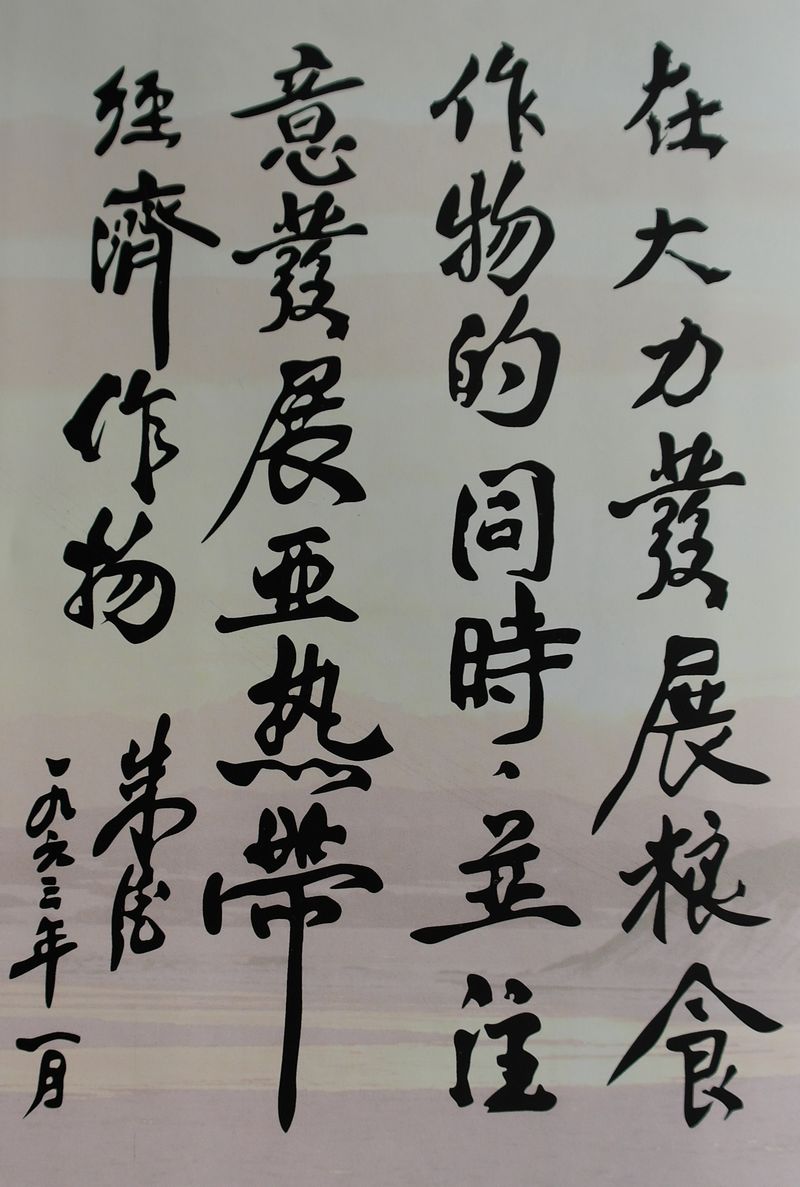 在大力發展粮食
作物的同時，並注
意發展亚热帶
經濟作物
朱德
一九六三年一月